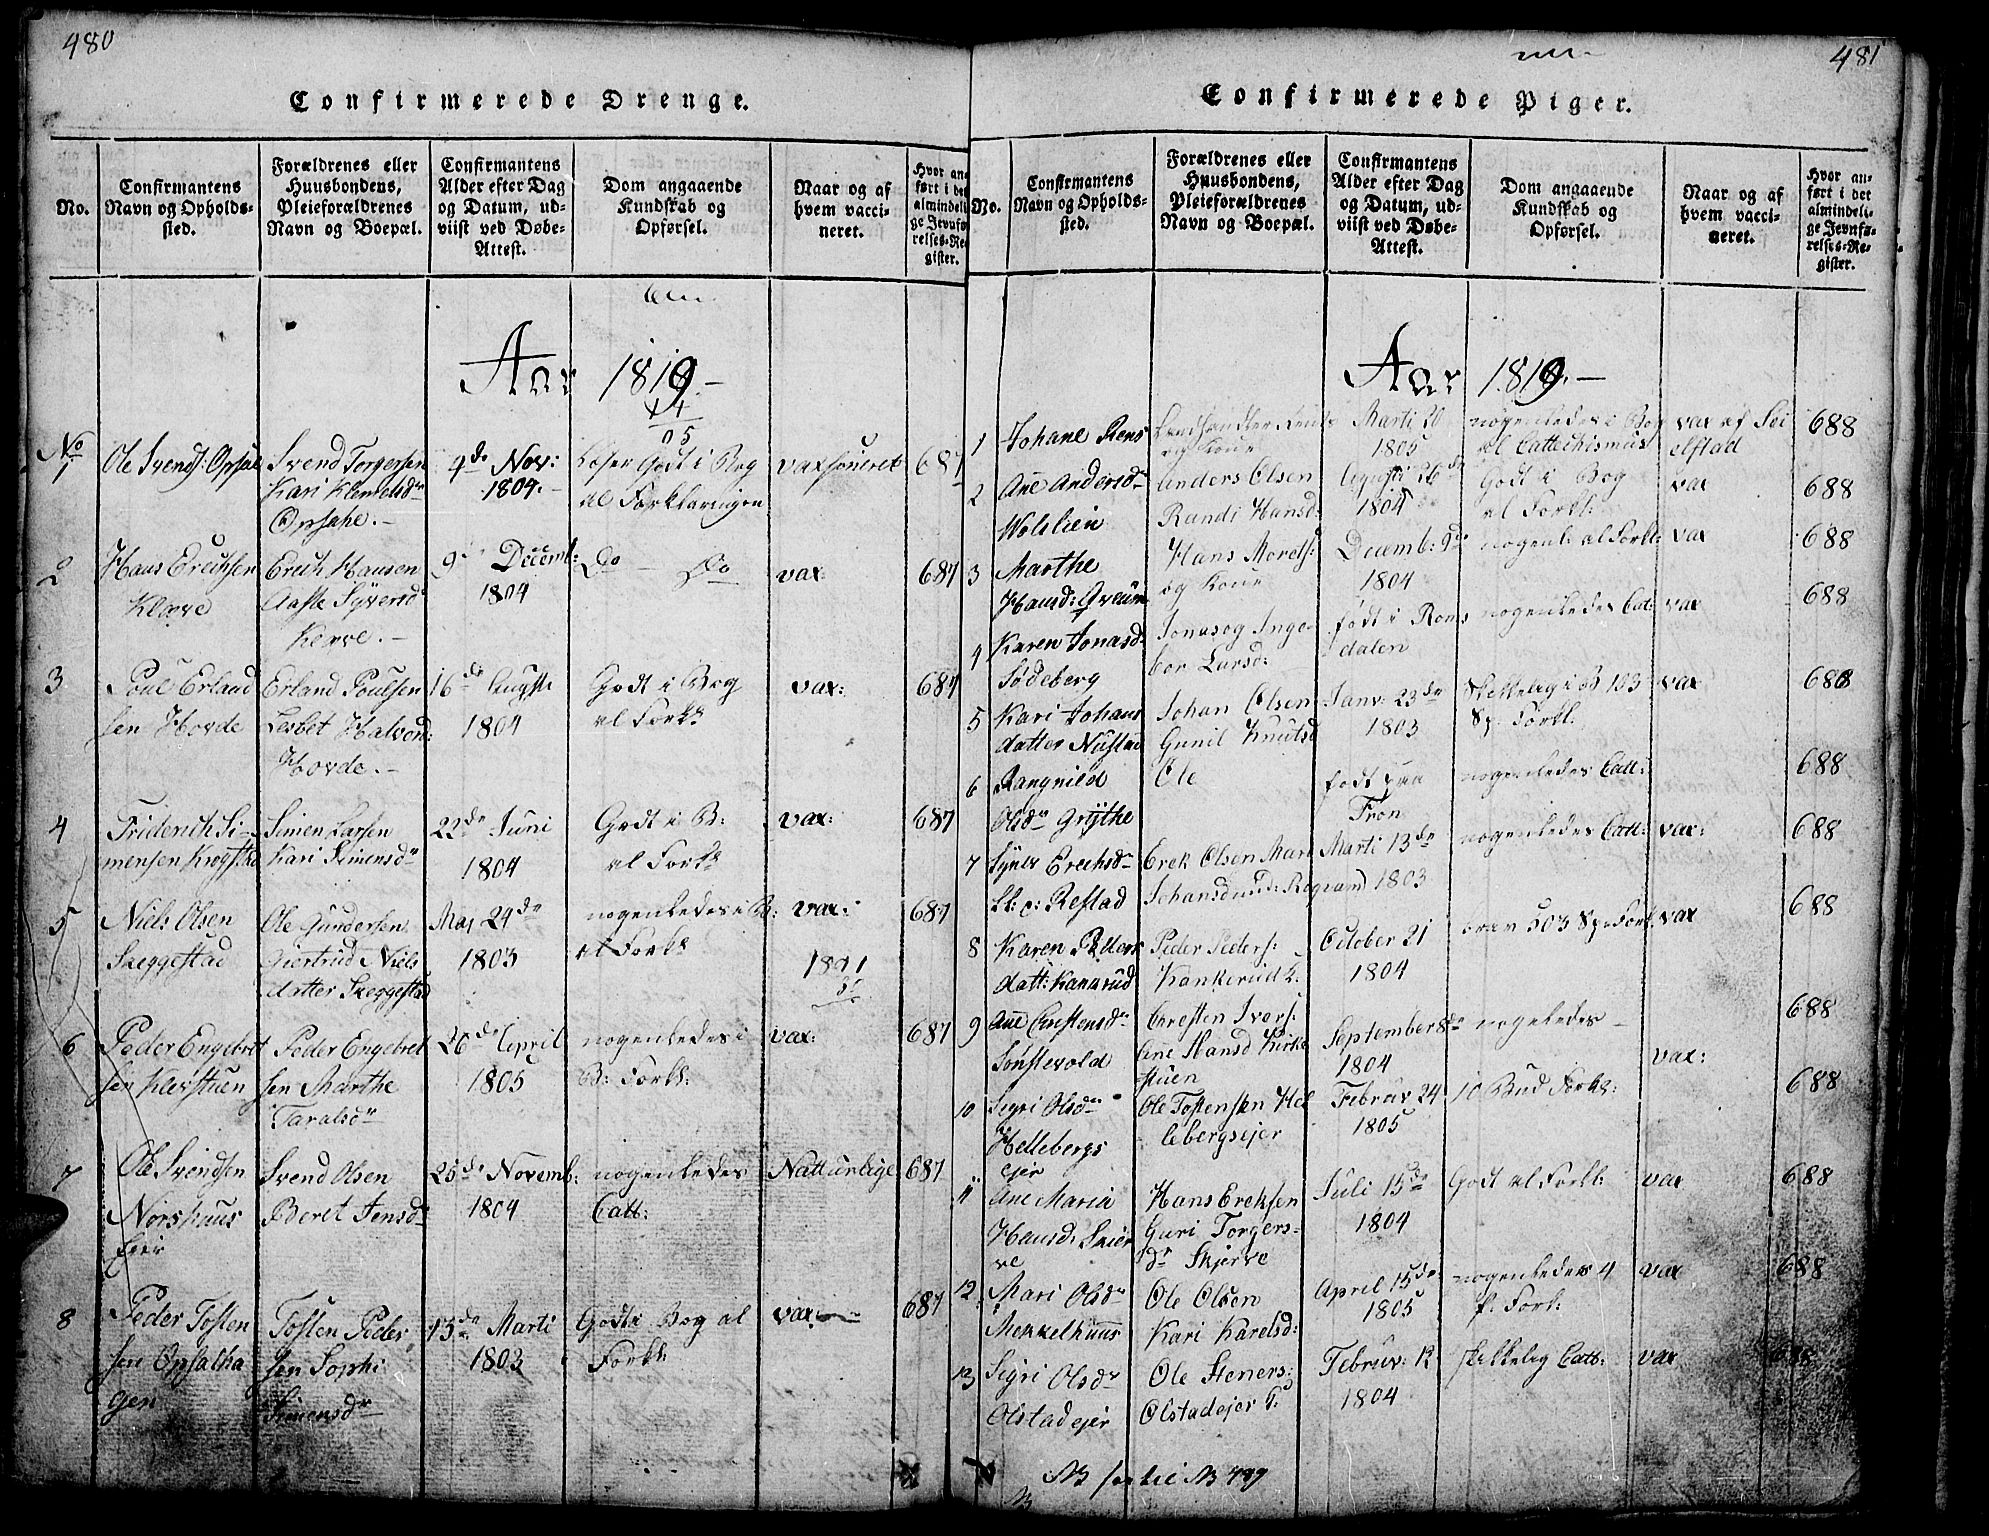 480
Confirmerede Drenge.
No.
Confirmantens
Navn og Opholds-
sted.
Forældrenes eller
Huusbondens,
Pleieforældrenes
Navn og Boepæl.
Confirmantens
Alder efter Dag
og Datum, ud-
viist ved Døbe-
Attest.
Dom angaaende
Kundskab og
Opførsel.
Naar og af
hvem vacci-
neret.
Hvor an-
ført i det
almindeli-
ge Jevnfø-
relses-Re-
gister.
Aar 1819.-
14
05
No
1
Ole Svends: Opsal
Svend Torgersen
Kari Klemetsdr
Opsahe.-
9de Nov:
1804.-
Læser Godt i Bog
al Forklaringen
vaxsineret
687
2
Hans Erichsen
Klæve
Erich Hansen
Aaste Syversdr
Kleve.-
9de Decemb:
1804
Do - Do
vax:
687
3
Poul Erland
sen Hovde
Erland Poulsen
Lesbet Halvord:
Hovde.-
16de Augsti
1804
Godt i Bog
al Forkl:
vax:
687
4
Friderich Si-
mensen Krogstad
Simen Larsen
Kari Simensdr
22de Juni
1804
Godt i B:
al Forkl:
vax:
687
5
Niels Olsen
Skeggestad
Ole Gundersen
Giertrud Niels
datter Skeggestad
Maj 24de
1803
nogenledes i B:
al Forkl:
vax:
687
6
Peder Engebret
sen Klevstuen
Peder Engebret
sen Marthe
Taralsdr
26de April
1805
nogenledes i
B: Forkl:
vax:
687
7
Ole Svendsen
Norshuus
Eier
Svend Olsen
Beret Jensdr
25de Novemb:
1804
nogenledes
Catt:
Natturlige
687
8
Peder Tosten
sen Opsalha
gen
Tosten Peder
sen Sophi
Simensdr
13de Marti
1803
Godt i Bog al
Forkl:
vax
687
481
Confirmerede Piger.
No.
Confirmantens
Navn og Opholds-
sted.
Forældrenes eller
Huusbondens,
Pleieforældrenes
Navn og Boepæl.
Confirmantens
Alder efter Dag
og Datum, ud-
viist ved Døbe-
Attest.
Dom angaaende
Kundskab og
Opførsel.
Naar og af
hvem vacci-
neret.
Hvor an-
ført i det
almindeli-
ge Jevnfø-
relses-Re-
gister.
Aar 1819.-
1
Johane Rens
Landhandler Rens
og Kone
Marti 20
1805
nogenledes i Bog
al Cattechismus
vax af Sei
elstad
688
2
Ane Andersdr
Wolslien
Anders Olsen
Randi Hansd:
Augusti 26de
1804
Godt i Bog
al Forkl:
vax
688
3
Marthe
Hansd:
Hans Morets:
og Kone
Decemb: 9de
1804
nogenl: al Forkl:
vax
688
4
Karen Jonasd:
Södeberg
Jonas og Inge-
bor Larsd:
födt i Roms
dalen
nogenledes Cat:
vax
688
5
Kari Johans
datter Nustad
Johan Olsen
Gunil Knutsd
Janv: 23de
1803
Skikkelig i B 103
Sp: Forkl:
vax
688
6
Rangnild
Olsdr Grythe
Ole
födt paa
Fron
nogenledes Catt:
688
7
Erichsdr
Restad
Erek Olsen Mari
Johansd
Marti 13de
1803
nogenledes Catt:
vax:
688
8
Karen Peders
datt: Kanqrud
Peder Peders:
Kankerud
October 21
1804
503 Sp: Forkl:
vax
688
9
Ane Chrestensdr
Sönstevold
Chresten Ivers:
Ane Hansd Kirke
stuen
September 8de
1804
nogeledes -
vax:
688
10
Segri Olsdr
Hellebergs
ejer
Ole Tostensen Hel
lebergsejer
Februar 24
1805
10 Bud Forkl:
688
11
Ane Maria
Hansd: Skier
ve
Hans Ereksen
Guri Torgers-
dr Skjerve
Juli 15de
1804
Godt al Forkl:
vax
688
12
Mari Olsdr
Mekkelhuus
Ole Olsen
Kari Karelsd:
April 15de
1805
nogenledes 4
p. Fork:
vax
688
13
Segri Olsdr
Olstadejer
Ole Steners:
Olstadejer
Februv: 12
1804
skikkelig Catt:
vax
688